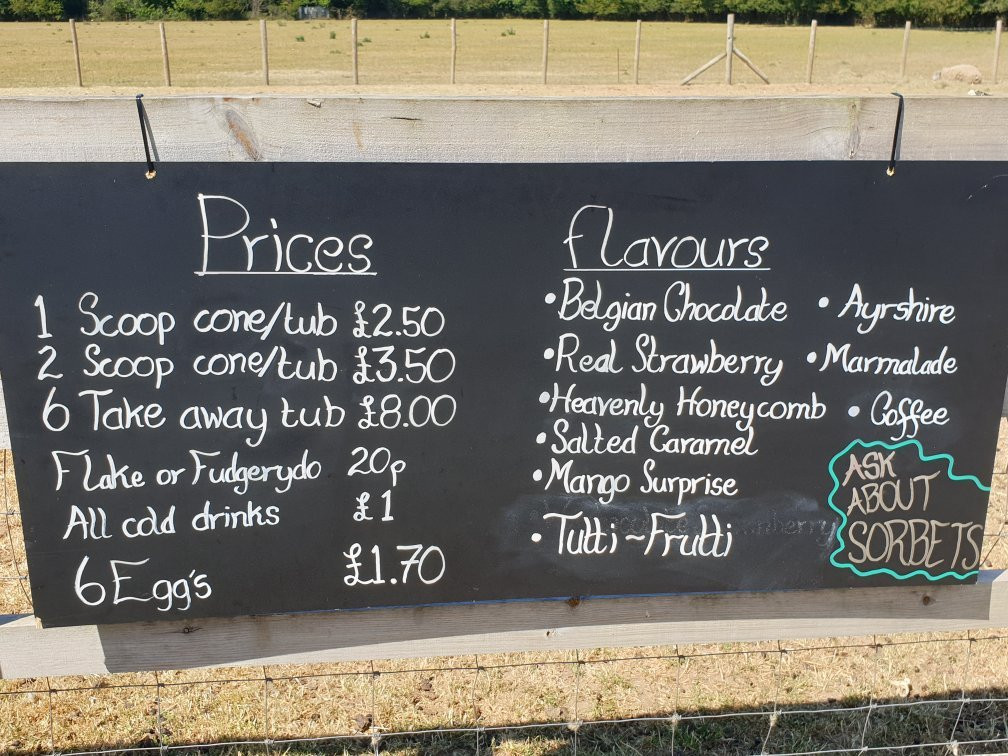 Prices
1 Scoop cone/tub £2.50
2 Scoop cone/tub £3.50
6 Take away tub £8.00
Flake or Fudgerydo 20p
All cold drinks £1
6 Egg's £1.70
Flavours
• Belgian Chocolate
• Real Strawberry
• Heavenly Honeycomb
• Salted Caramel
• Mango Surprise
• Tutti-Frutti
• Ayrshire
• Marmalade
• Coffee
ASK
ABOUT
SORBETS